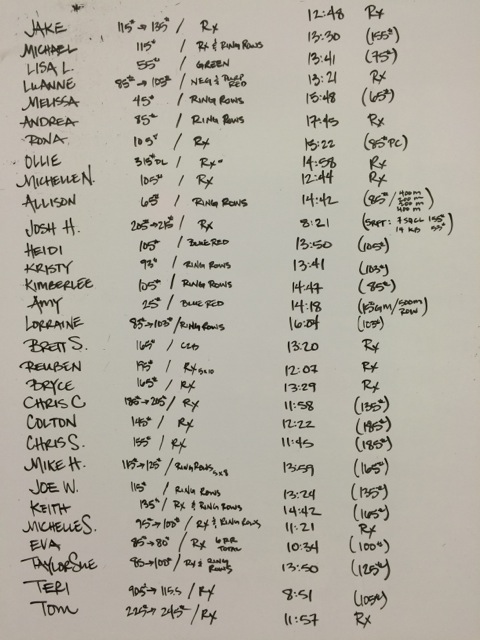 JAKE 115# → 135# / Rx 12:48 Rx
MICHAEL 115# / Rx & RING ROWS 13:30 (155#)
LISA L. 55# / GREEN 13:41 (75#)
LUANNE 85# → 105# / NEG & PURP RED 13:21 Rx
MELISSA 45# / RING ROWS 15:48 (65#)
ANDREA 85# / RING ROWS 17:45 Rx
RONA 105# / Rx 13:22 (85# PC)
OLLIE 315# DL / Rx 14:58 Rx
MICHELLE N. 105# / Rx 12:44 Rx
ALLISON 65# / RING ROWS 14:42 (85# / 400m 400m)
JOSH H. 205# → 215# / Rx 8:21
HEIDI 105# / BLUE RED 13:50 (105#)
KRISTY 93# / RING ROWS 13:41 (103#)
KIMBERLEE 105# / RING ROWS 14:47 (85#)
AMY 25# / BLUE RED 14:18 (15# GM / 500m ROW)
LORRAINE 85# → 103# / RING ROWS 16:04 (103#)
BRETT S. 165# / C2B 13:20 Rx
REUBEN 195# / Rx 5x10 12:07 Rx
BRYCE 165# / Rx 13:29 Rx
CHRIS C 185# → 205# / Rx 11:58 (135#)
COLTON 145# / Rx 12:22 (185#)
CHRIS S. 155# / Rx 11:45 (185#)
MIKE H. 115# → 125# / RING ROWS 5x8 13:59 (165#)
JOE W. 115# / RING ROWS 13:24 (135#)
KEITH 135# / Rx & RING ROWS 14:42 (165#)
MICHELLE S. 95# → 100# / Rx & RING ROWS 11:21 Rx
EVA 85# → 80# / Rx 6 RR TOTAL 10:34 (100#)
TAYLOR SUE 85# → 100# / Rx & RING ROWS 13:50 (125#)
TERI 905# → 115.5 / Rx 8:51 (105#)
TOM 225# → 245# / Rx 11:57 Rx